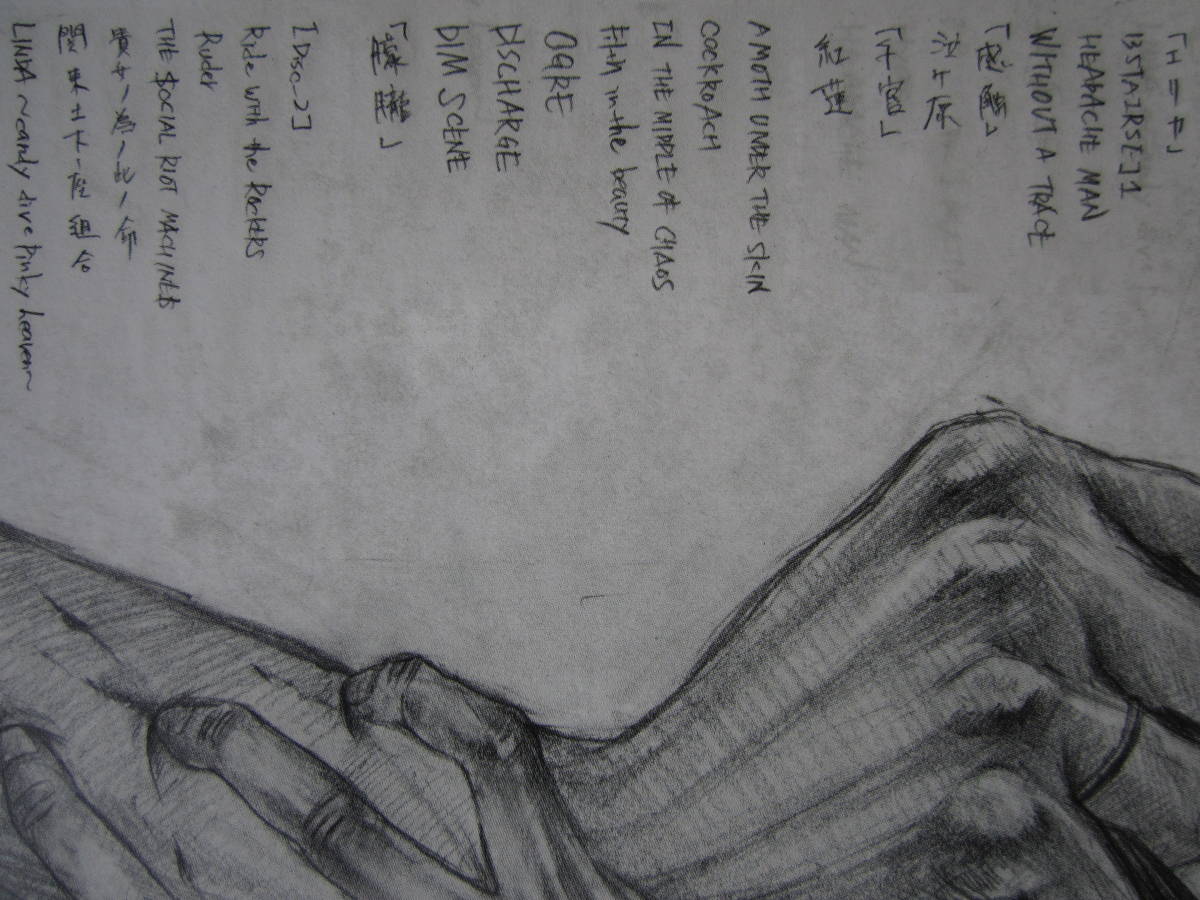 13STAIRS[-]1
HEADACHE MAN
WITHOUT A TRACE
泣ヶ原
紅蓮
A MOTH UNDER THE SKIN
COCKROACH
IN THE MIDDLE OF CHAOS
Filth in the beauty
OGRE
DISCHARGE
DIM SCENE
[Disc.2]
Ride with the ROCKERS
Ruder
THE $OCIAL RIOT MACHINE$
貴女ノ為ノ此ノ命
関東土下座組合
LINDA ~candy dive pinky heaven~